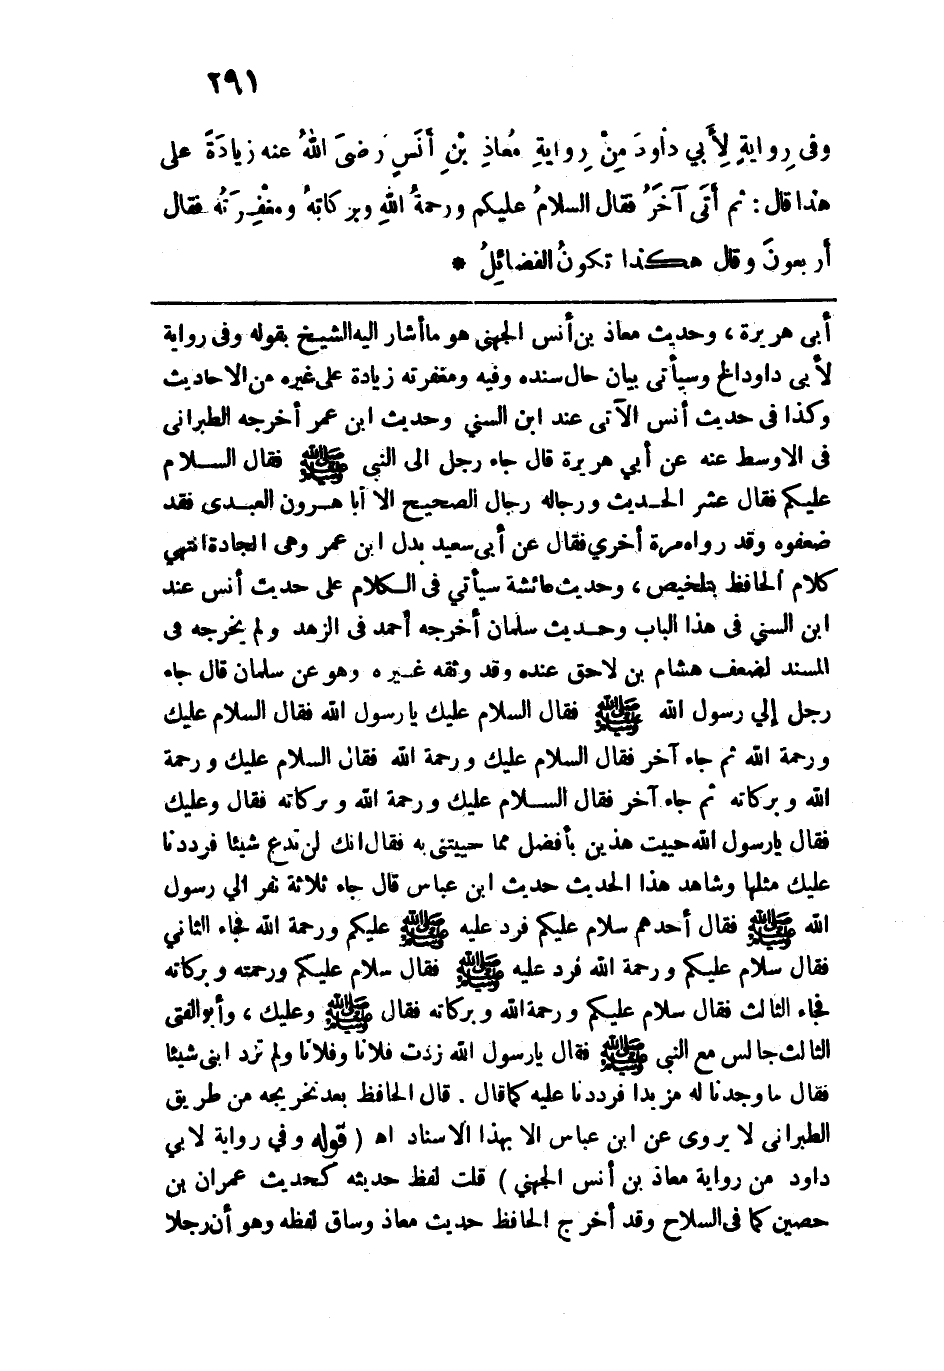 ٢٩١
وفى رِوايةٍ لِأَبي داوِدَ مِنْ رِوايةِ مُعاذِ بْنِ أَنَسٍ رَضىَ اللهُ عنه زيادَةً على
هذا قال : ثم أَتَى آخَرُ فقال السلامُ عليكم ورحمةُ اللهِ وبركاتهُ ومغْفِرَتُه فقال
أربعونَ وقال هكذا تكونُ الفضائِلُ *
أبى هريرة ، وحديث معاذ بن أنس الجهني هو ما أشار اليه الشيخ بقوله وفى رواية
لأبى داود الخ وسيأتى بيان حال سنده وفيه ومغفرته زيادة على غيره من الاحاديث
وكذا فى حديث أنس الآتى عند ابن السني وحديث ابن عمر أخرجه الطبرانى
فى الاوسط عنه عن أبي هريرة قال جاء رجل الى النبى ﷺ فقال السلام
عليكم فقال عشر الحديث ورجاله رجال الصحيح الا أبا هرون العبدى فقد
ضعفوه وقد رواه مرة أخري فقال عن أبى سعيد بدل ابن عمر وهى الجادة انتهي
كلام الحافظ بتلخيص ، وحديث عائشة سيأتي فى الكلام على حديث أنس عند
ابن السني فى هذا الباب وحديث سلمان أخرجه أحمد فى الزهد ولم يخرجه فى
المسند لضعف هشام بن لاحق عنده وقد وثقه غيره وهو عن سلمان قال جاء
رجل إلي رسول الله ﷺ فقال السلام عليك يا رسول الله فقال السلام عليك
ورحمة الله ثم جاء آخر فقال السلام عليك ورحمة الله فقال السلام عليك ورحمة
الله وبركاته ثم جاء آخر فقال السلام عليك ورحمة الله وبركاته فقال وعليك
فقال يارسول الله حييت هذين بأفضل مما حييتنى به فقال انك لن تدع شيئا فرددنا
عليك مثلها وشاهد هذا الحديث حديث ابن عباس قال جاء ثلاثة نفر الي رسول
الله ﷺ فقال أحدهم سلام عليكم فرد عليه ﷺ عليكم ورحمة الله فجاء الثاني
فقال سلام عليكم ورحمة الله فرد عليه ﷺ فقال سلام عليكم ورحمته وبركاته
فجاء الثالث فقال سلام عليكم ورحمة الله وبركاته فقال ﷺ وعليك ، وأبو الفتى
الثالث جالس مع النبى ﷺ فقال يارسول الله زدت فلانا وفلانا ولم تزد ابنى شيئا
فقال ما وجدنا له مزيدا فرددنا عليه كما قال . قال الحافظ بعد تخريجه من طريق
الطبرانى لا يروى عن ابن عباس الا بهذا الاسناد اه ( قوله وفي رواية لابي
داود من رواية معاذ بن أنس الجهني ) قلت لفظ حديثه كحديث عمران بن
حصين كما فى السلاح وقد أخرج الحافظ حديث معاذ وساق لفظه وهو أن رجلا